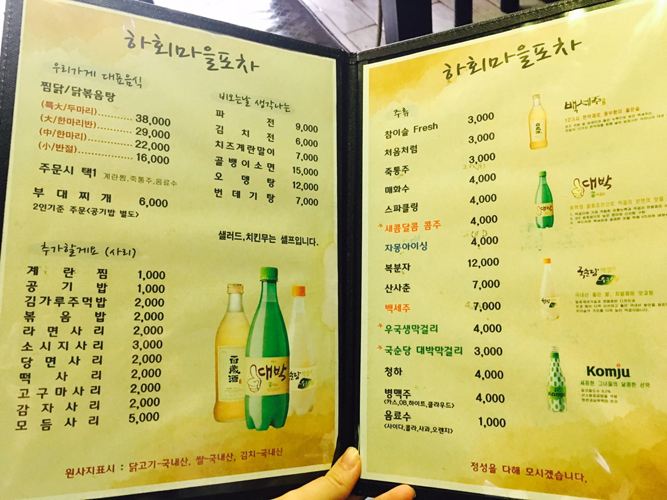 하회마을포차
우리가게 대표음식
찜닭/닭볶음탕
(특大/두마리) 38,000
(大/한마리반) 29,000
(中/한마리) 22,000
(小/반절) 16,000
주문시 택1 계란찜,죽통주,음료수
부대찌개 6,000
2인기준 주문<공기밥 별도>
추가할게요 (사리)
계란찜 1,000
공기밥 1,000
김가루주먹밥 2,000
볶음밥 2,000
라면사리 2,000
소시지사리 3,000
당면사리 2,000
떡사리 2,000
고구마사리 2,000
감자사리 2,000
모듬사리 5,000
비오는날 생각나는
파전 9,000
김치전 6,000
치즈계란말이 7,000
골뱅이소면 15,000
오뎅탕 12,000
번데기탕 7,000
샐러드,치킨무는 셀프입니다.
百歲酒
대박
원사지표시 : 닭고기-국내산, 쌀-국내산, 김치-국내산
하회마을포차
주류
참이슬 Fresh 3,000
처음처럼 3,000
죽통주 3,000
매화수 4,000
스파클링 4,000
*새콤달콤 콤주 4,000
자몽아이싱 4,000
복분자 12,000
산사춘 7,000
*백세주 7,000
*우국생막걸리 4,000
*국순당 대박막걸리 4,000
청하 4,000
병맥주 4,000
(카스,OB,하이트,클라우드)
음료수 1,000
(사이다,콜라,사과,오렌지)
백세주
대박
국순당
Komju
정성을 다해 모시겠습니다.